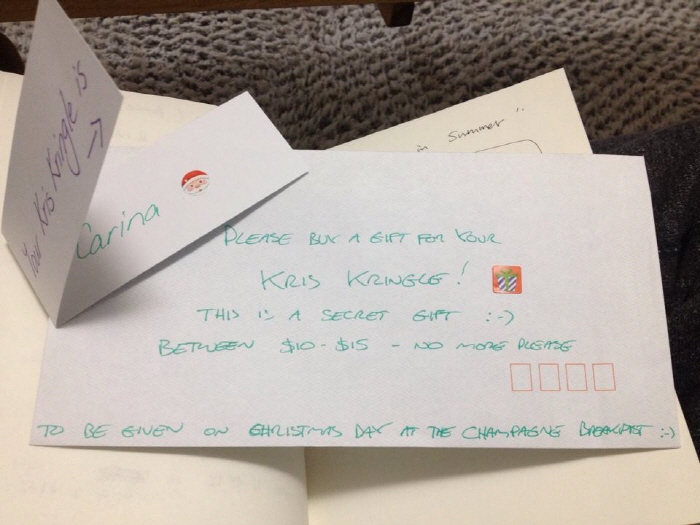 Your Kris Kringle is →
Carina
in summer
PLEASE BUY A GIFT FOR YOUR
KRIS KRINGLE!
THIS IS A SECRET GIFT :-)
BETWEEN $10-$15 - NO MORE PLEASE
TO BE GIVEN ON CHRISTMAS DAY AT THE CHAMPAGNE BREAKFAST :-)